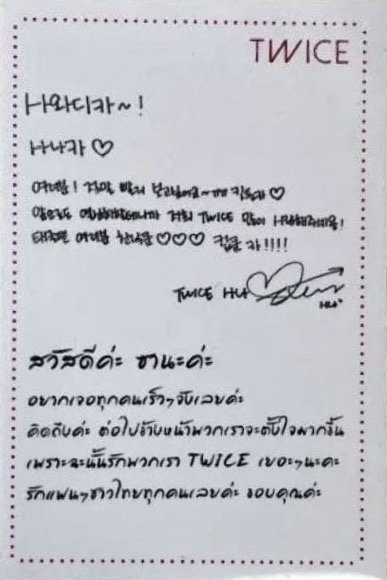 TWICE
사와디카~!
사나카 ♡
여러분! 정말 많이 보고싶어요~ 카 ♡
앞으로도 열심히할테니까 저희 TWICE 많이 사랑해주세요!
태국팬 여러분 ♡♡♡ 컵쿤 카!!!!
TWICE 사나
สวัสดีค่ะ ซานะค่ะ
อยากเจอทุกคนเร็วๆจังเลยค่ะ
คิดถึงค่ะ ต่อไปข้างหน้าพวกเราจะตั้งใจมากขึ้น
เพราะฉะนั้นรักพวกเรา TWICE เยอะๆนะคะ
รักแฟนๆชาวไทยทุกคนเลยค่ะ ขอบคุณค่ะ